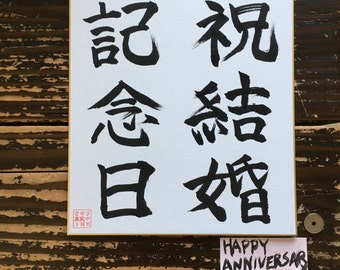 祝結婚
記念日
HAPPY
ANNIVERSARY